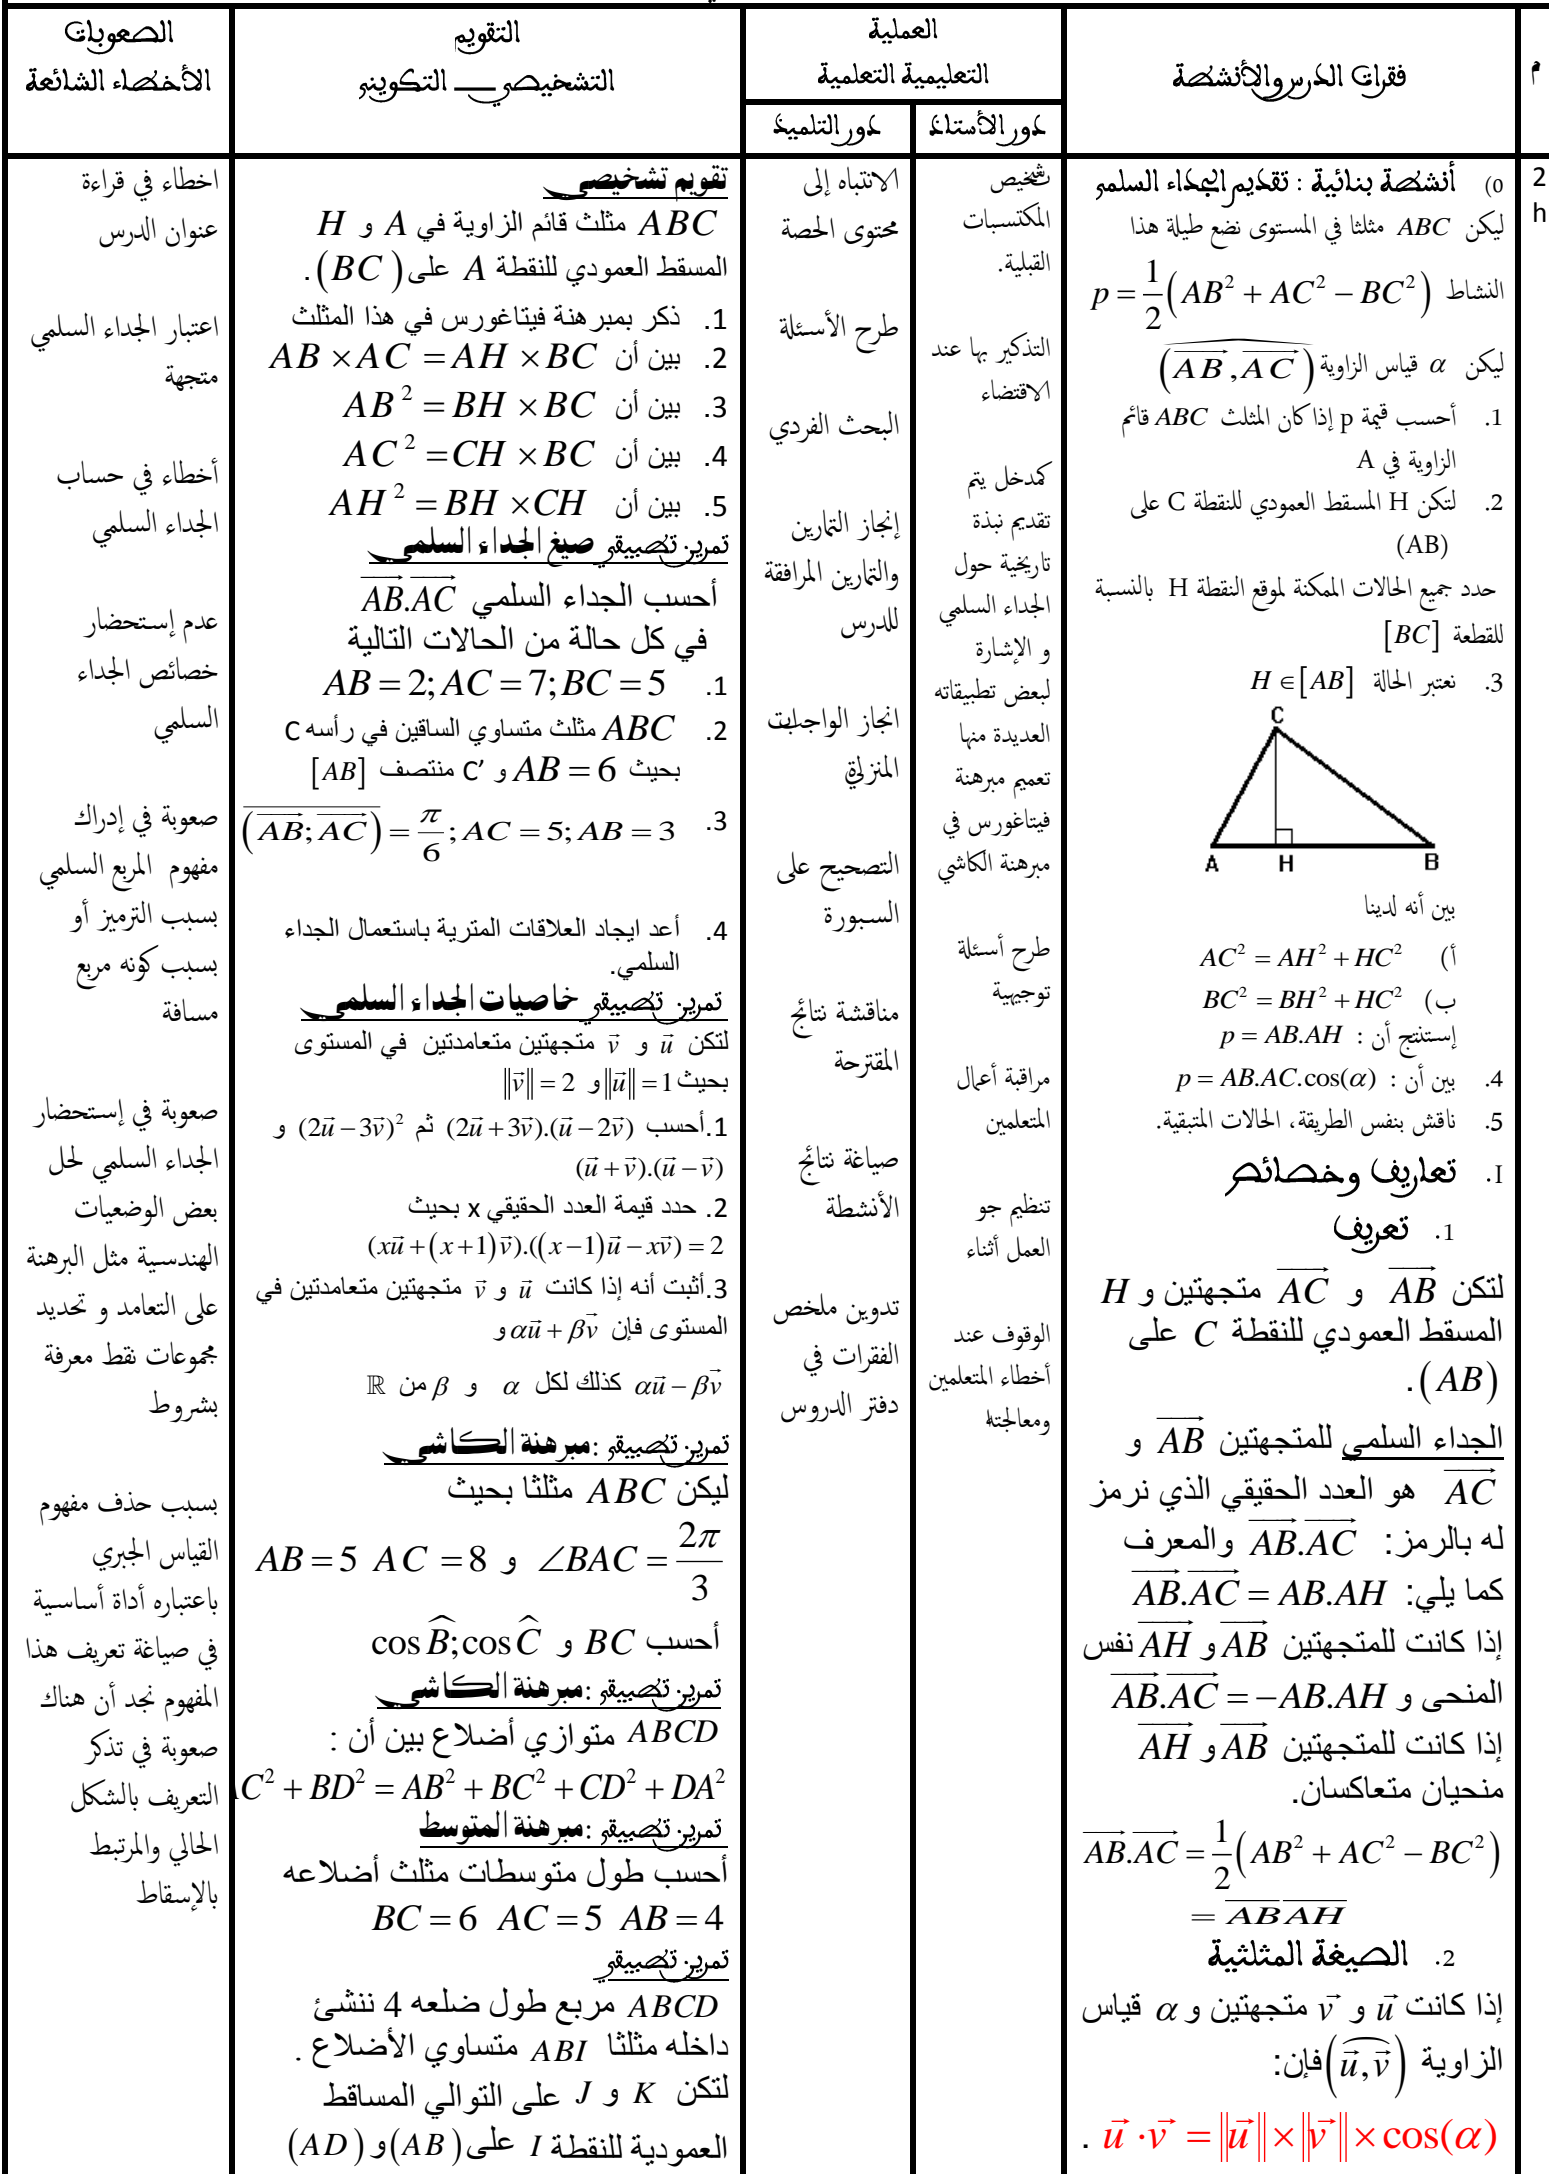 م
فقرات الدرس والأنشطة
العملية
التعليمية التعلمية
دور الأستاذ
دور التلميذ
التقويم
التشخيصي ـــ التكويني
الصعوبات
الأخطاء الشائعة
2
h
0) أنشطة بنائية : تقديم الجداء السلمي
ليكن ABC مثلثا في المستوى نضع طيلة هذا
النشاط p = \frac{1}{2}(AB² + AC² − BC²)
ليكن α قياس الزاوية (AB⃗ , AC⃗)
1. أحسب قيمة p إذا كان المثلث ABC قائم
الزاوية في A
2. لتكن H المسقط العمودي للنقطة C على
(AB)
حدد جميع الحالات الممكنة لموقع النقطة H بالنسبة
للقطعة [BC]
3. نعتبر الحالة H ∈ [AB]
C
A H B
بين أنه لدينا
أ) AC² = AH² + HC²
ب) BC² = BH² + HC²
إستنتج أن : p = AB.AH
4. بين أن : p = AB.AC.cos(α)
5. ناقش بنفس الطريقة، الحالات المتبقية.
I. تعاريف وخصائص
1. تعريف
لتكن AB⃗ و AC⃗ متجهتين و H
المسقط العمودي للنقطة C على
(AB).
الجداء السلمي للمتجهتين AB⃗ و
AC⃗ هو العدد الحقيقي الذي نرمز
له بالرمز: AB⃗.AC⃗ والمعرف
كما يلي: AB⃗.AC⃗ = AB.AH
إذا كانت للمتجهتين AB⃗ و AH⃗ نفس
المنحى و AB⃗.AC⃗ = −AB.AH
إذا كانت للمتجهتين AB⃗ و AH⃗
منحيان متعاكسان.
AB⃗.AC⃗ = \frac{1}{2}(AB² + AC² − BC²)
= \overline{AB} \overline{AH}
2. الصيغة المثلثية
إذا كانت u⃗ و v⃗ متجهتين و α قياس
الزاوية (u⃗, v⃗) فإن:
u⃗ · v⃗ = ‖u⃗‖ × ‖v⃗‖ × cos(α) .
تشخيص
المكتسبات
القبلية.
التذكير بها عند
الاقتضاء
كمدخل يتم
تقديم نبذة
تاريخية حول
الجداء السلمي
و الإشارة
لبعض تطبيقاته
العديدة منها
تعميم مبرهنة
فيتاغورس في
مبرهنة الكاشي
طرح أسئلة
توجيهية
مراقبة أعمال
المتعلمين
تنظيم جو
العمل أثناء
الوقوف عند
أخطاء المتعلمين
ومعالجتها
الانتباه إلى
محتوى الحصة
طرح الأسئلة
البحث الفردي
إنجاز التمارين
والتمارين المرافقة
للدرس
انجاز الواجبات
المنزلية
التصحيح على
السبورة
مناقشة نتائج
المقترحة
صياغة نتائج
الأنشطة
تدوين ملخص
الفقرات في
دفتر الدروس
تقويم تشخيصي
ABC مثلث قائم الزاوية في A و H
المسقط العمودي للنقطة A على (BC).
1. ذكر بمبرهنة فيتاغورس في هذا المثلث
2. بين أن AB × AC = AH × BC
3. بين أن AB² = BH × BC
4. بين أن AC² = CH × BC
5. بين أن AH² = BH × CH
تمرين تطبيقي صيغ الجداء السلمي
أحسب الجداء السلمي AB⃗.AC⃗
في كل حالة من الحالات التالية
1. AB = 2; AC = 7; BC = 5
2. ABC مثلث متساوي الساقين في رأسه C
بحيث AB = 6 و C′ منتصف [AB]
3. \overline{(AB⃗; AC⃗)} = \frac{π}{6}; AC = 5; AB = 3
4. أعد ايجاد العلاقات المترية باستعمال الجداء
السلمي.
تمرين تطبيقي خاصيات الجداء السلمي
لتكن u⃗ و v⃗ متجهتين متعامدتين في المستوى
بحيث ‖u⃗‖ = 1 و ‖v⃗‖ = 2
1.أحسب (2u⃗ + 3v⃗).(u⃗ − 2v⃗) ثم (2u⃗ − 3v⃗)² و
(u⃗ + v⃗).(u⃗ − v⃗)
2. حدد قيمة العدد الحقيقي x بحيث
(xu⃗ + (x + 1)v⃗).((x − 1)u⃗ − xv⃗) = 2
3.أثبت أنه إذا كانت u⃗ و v⃗ متجهتين متعامدتين في
المستوى فإن αu⃗ + βv⃗ و
αu⃗ − βv⃗ كذلك لكل α و β من ℝ
تمرين تطبيقي :مبرهنة الكاشي
ليكن ABC مثلثا بحيث
AB = 5 AC = 8 و ∠BAC = \frac{2π}{3}
أحسب BC و cos B̂; cos Ĉ
تمرين تطبيقي :مبرهنة الكاشي
ABCD متوازي أضلاع بين أن :
C² + BD² = AB² + BC² + CD² + DA²
تمرين تطبيقي :مبرهنة المتوسط
أحسب طول متوسطات مثلث أضلاعه
BC = 6 AC = 5 AB = 4
تمرين تطبيقي
ABCD مربع طول ضلعه 4 ننشئ
داخله مثلثا ABI متساوي الأضلاع .
لتكن K و J على التوالي المساقط
العمودية للنقطة I على (AB) و (AD)
اخطاء في قراءة
عنوان الدرس
اعتبار الجداء السلمي
متجهة
أخطاء في حساب
الجداء السلمي
عدم إستحضار
خصائص الجداء
السلمي
صعوبة في إدراك
مفهوم المربع السلمي
بسبب الترميز أو
بسبب كونه مربع
مسافة
صعوبة في إستحضار
الجداء السلمي لحل
بعض الوضعيات
الهندسية مثل البرهنة
على التعامد و تحديد
مجموعات نقط معرفة
بشروط
بسبب حذف مفهوم
القياس الجبري
باعتباره أداة أساسية
في صياغة تعريف هذا
المفهوم نجد أن هناك
صعوبة في تذكر
التعريف بالشكل
الحالي والمرتبط
بالإسقاط